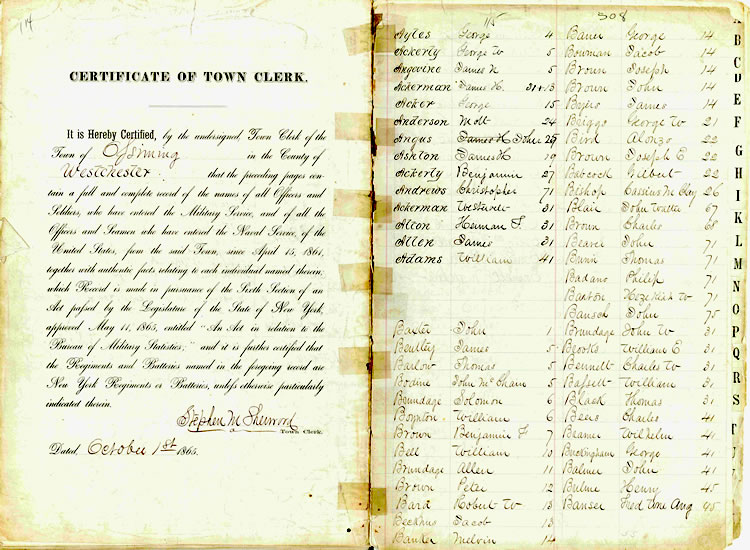 114
CERTIFICATE OF TOWN CLERK.
It is Hereby Certified, by the undersigned, Town Clerk of the
Town of Ossining in the County of
Westchester that the preceding pages con-
tain a full and complete record of the names of all Officers and
Soldiers, who have entered the Military Service, and of all the
Officers and Seamen who have entered the Naval Service, of the
United States, from the said Town, since April 15, 1861,
together with authentic facts relating to each individual named therein,
which Record is made in pursuance of the Sixth Section of an
Act passed by the Legislature of the State of New York,
approved May 11, 1865, entitled "An Act in relation to the
Bureau of Military Statistics;" and it is further certified that
the Regiments and Batteries named in the foregoing record are
New York Regiments or Batteries, unless otherwise particularly
indicated therein.
Stephen M Sherwood
Town Clerk.
Dated, October 1st 1865.
115
308
Ayles George 4
Ackerly George W 5
Angevine James N 5
Ackerman James H. 31+13
Acker George 15
Anderson Mott 24
Angus James H John 25
Ashton James H 19
Ackerly Benjamin 27
Andrews Christopher 71
Ackerman 31
Alton Heman F. 31
Allen James 31
Adams William 41
Baxter John 1
Bentley James 5
Barlow Thomas 5
Boane John McCham 5
Brundage Solomon 6
Boynton William 6
Brown Benjamin F 7
Bell William 10
Brundage Allen 11
Brown Peter 12
Bard Robert W 13
Jacob 13
Melvin 14
Bauer George 14
Bowman Jacob 14
Broun Joseph 14
Broun John 14
James 14
Briggs George W 21
Bird Alonzo 22
Brown Joseph E 22
Babcock Gilbert 22
Bishop Cassius M Clay 26
Blair John Walter 67
Broun Charles 68
Beaver John 71
Thomas 71
Badano Philip 71
Barton Hezekiah W 71
Bansch John 75
Brundage John W 31
Brooks William E 31
Bennett Charles W 31
Bassett William 31
Black Thomas 31
Bens Charles 41
Beamer Wilhelm 41
Buckingham George 41
Balmer John 41
Bulme Henry 45
Banser Fred Wm Aug 45
A
B
C
D
E
F
G
H
I
K
L
M
N
O
P
Q
R
S
T
U
V